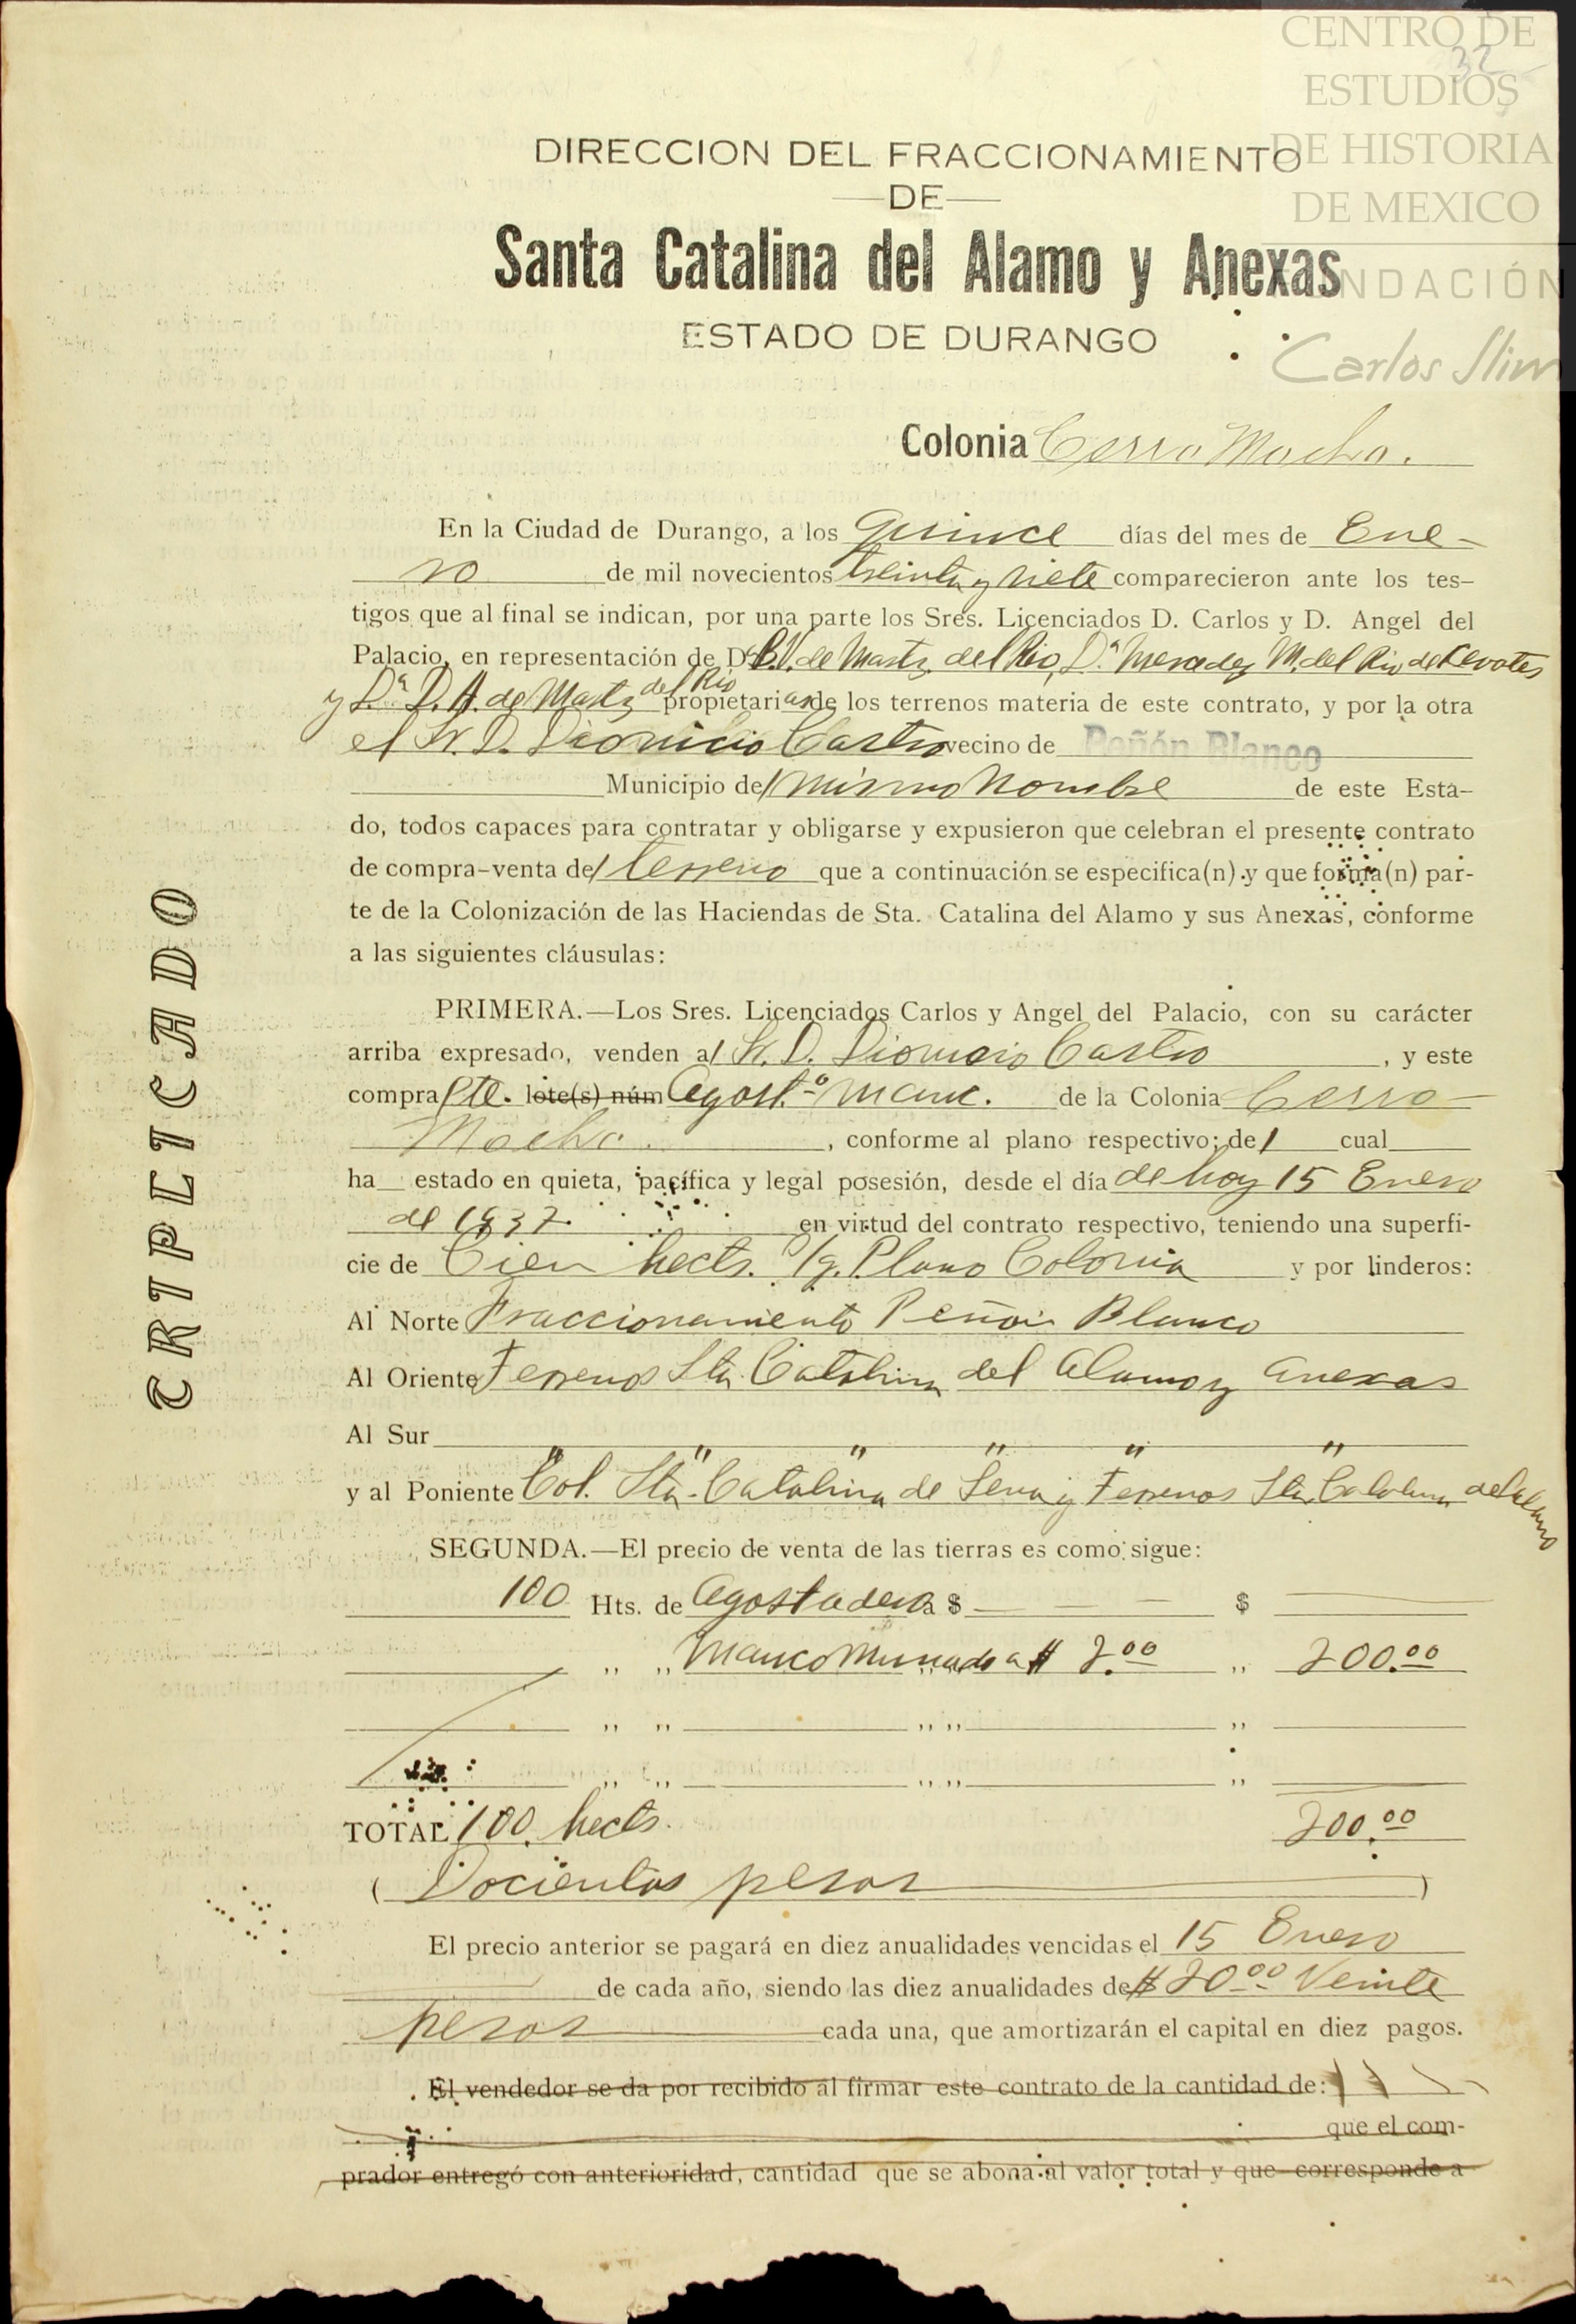 CENTRO DE
ESTUDIOS
DE HISTORIA
DE MEXICO
FUNDACIÓN
Carlos Slim
32
DIRECCION DEL FRACCIONAMIENTO
—DE—
Santa Catalina del Alamo y Anexas
ESTADO DE DURANGO
Colonia Cerro Mocho.
TRIPLICADO
En la Ciudad de Durango, a los quince días del mes de Ene-
ro de mil novecientos treinta y siete comparecieron ante los tes-
tigos que al final se indican, por una parte los Sres. Licenciados D. Carlos y D. Angel del
Palacio, en representación de D. V. de Martz. del Rio, D.ª Mercedes M. del Rio de
y D.ª D. A. de Martz del Rio propietarias de los terrenos materia de este contrato, y por la otra
el Sr. D. Dionicio Castro vecino de Peñón Blanco
Municipio del mismo nombre de este Esta-
do, todos capaces para contratar y obligarse y expusieron que celebran el presente contrato
de compra-venta del terreno que a continuación se especifica(n) y que forma(n) par-
te de la Colonización de las Haciendas de Sta. Catalina del Alamo y sus Anexas, conforme
a las siguientes cláusulas:
PRIMERA.—Los Sres. Licenciados Carlos y Angel del Palacio, con su carácter
arriba expresado, venden al Sr. D. Dionicio Castro, y este
compra pte. lote(s) núm Agost.º manc. de la Colonia Cerro
Mocho., conforme al plano respectivo; del cual
ha estado en quieta, pacífica y legal posesión, desde el día de hoy 15 Enero
de 1937. en virtud del contrato respectivo, teniendo una superfi-
cie de Cien hects. Plano Colonia y por linderos:
Al Norte Fraccionamiento Peñón Blanco
Al Oriente Terrenos Sta. Catalina del Alamo y anexas
Al Sur " " " " " "
y al Poniente Col. Sta. Catalina de Sena y Terrenos Sta. Catalina del Alamo
SEGUNDA.—El precio de venta de las tierras es como sigue:
100 Hts. de Agostadero a $ — — — $
,, ,, Mancomunado a $ 2.00 ,, 200.00
,, ,, ,, ,, ,,
,, ,, ,, ,, ,,
TOTAL 100 hects. 200.00
( Docientos pesos )
El precio anterior se pagará en diez anualidades vencidas el 15 Enero
de cada año, siendo las diez anualidades de $ 20.00 Veinte
pesos cada una, que amortizarán el capital en diez pagos.
El vendedor se da por recibido al firmar este contrato de la cantidad de:
que el com-
prador entregó con anterioridad, cantidad que se abona al valor total y que corresponde a